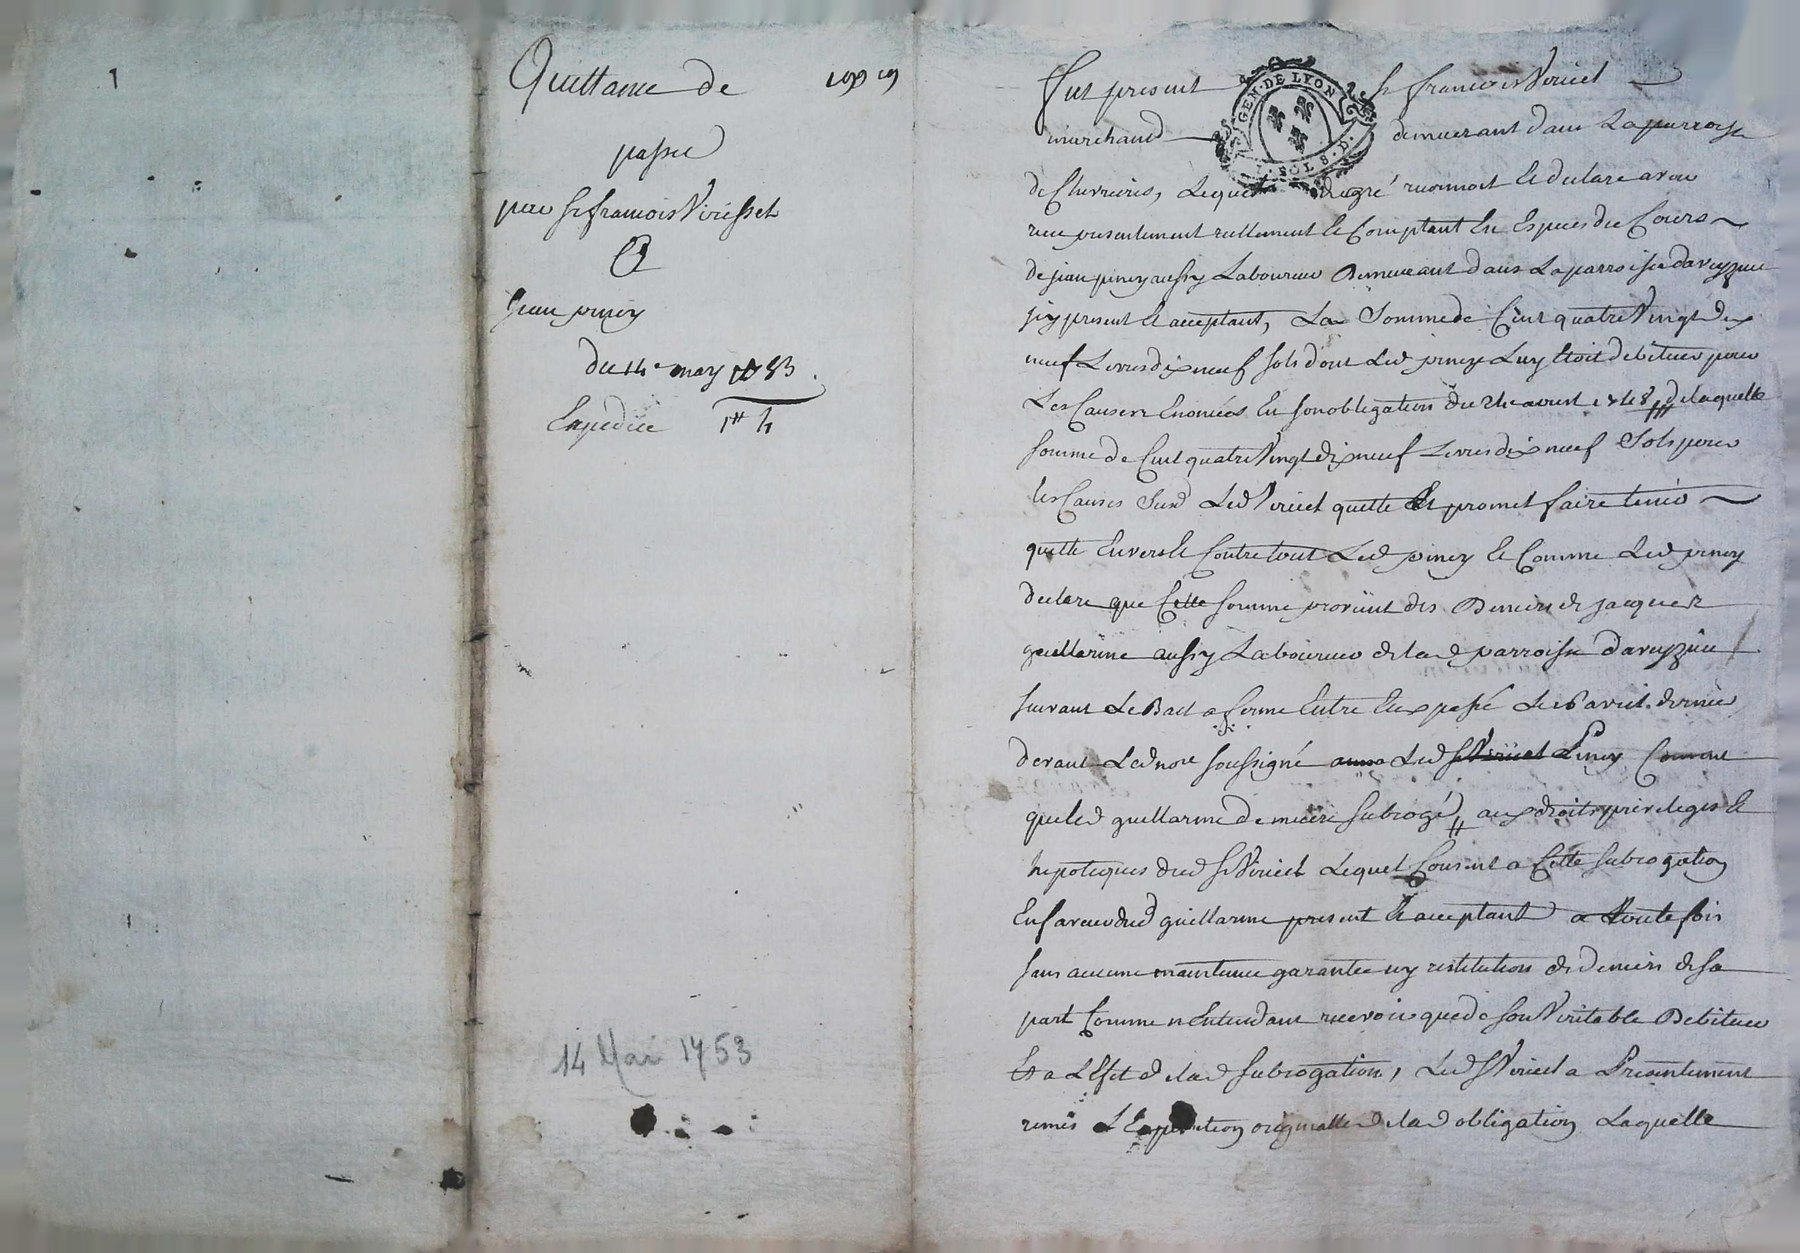 1
Quittance de 199 19
passée
par Sr francois Virisset
A
Jean piney
du 14e may 1753.
Expediée 1tt 4
14 Mai 1753
fut present Sr francois Viricel
GEN. DE LYON
SOLS. D.
marchand demeurant dans La parroisse
de Chevrieres, Lequel de gré reconnoit et declare avoir
receu presentement reellement et Comptant En Especes du Cours
de jean piney aussy Laboureur Demeurant dans La parroisse daveyzieu
jcy present et acceptant, La Somme de Cent quatre Vingt dix
neuf Livres dix neuf sols dont Led piney Luy Etoit debiteur pour
Les Causes Enoncées En son obligation du 24e avril 1748 // de laquelle
somme de Cent quatre Vingt dix neuf Livres dix neuf Sols pour
les Causes Susd Led Viricel quitte Et promet faire tenir
quitte Envers et Contre tout Led piney et Comme Led piney
declare que Cette somme provient des Deniers de jacques
guillarme aussy Laboureur de lad parroisse daveyzieu
suivant Le Bail a ferme Entre Eux passé Le 16 avril dernier
devant Led nore soussigné Led Sr Viricel Piney Consent
que led guillarme demeure subrogé // aux droits privileges et
hipoteques dud Sr Viricel Lequel Consent a Cette subrogation
En faveur dud guillarme present et acceptant a toutefois
sans aucune maintenue garantie ny restitution de deniers de sa
part Comme n'Entendant recevoir que de son Veritable Debiteur
Et a L'Efet de lad subrogation, Led Sr Viricel a Presentement
remis L'Expedition originalle de lad obligation Laquelle